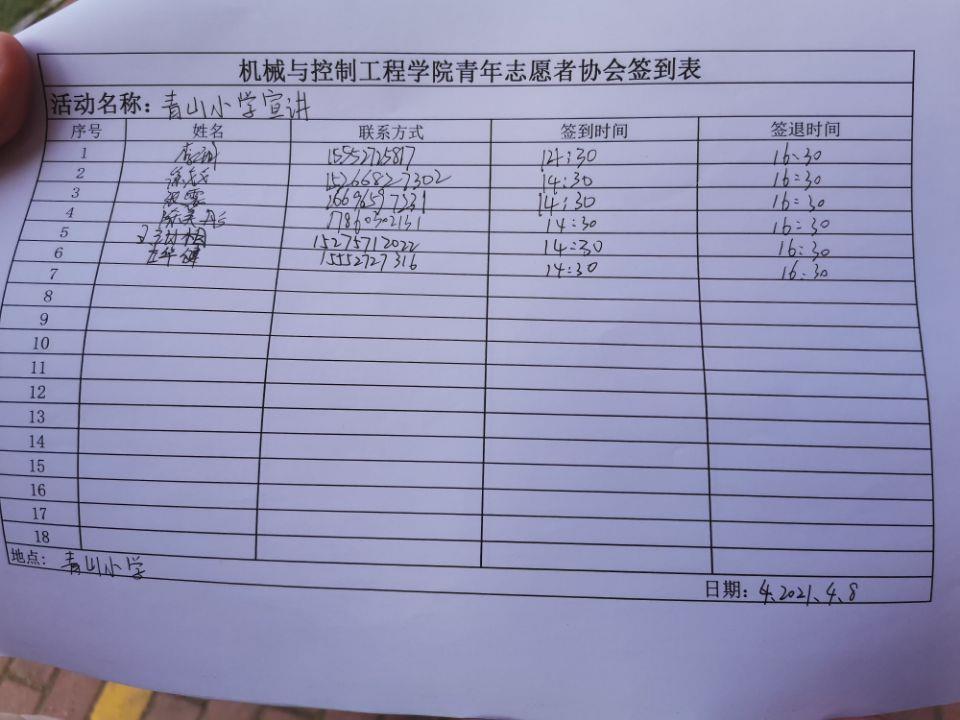 机械与控制工程学院青年志愿者协会签到表
活动名称：青山小学宣讲
序号 姓名 联系方式 签到时间 签退时间
1 15552725817 14:30 16:30
2 15266827302 14:30 16:30
3 16696597331 14:30 16:30
4 17860502131 14:30 16:30
5 15275712022 14:30 16:30
6 王华健 15552727316 14:30 16:30
7
8
9
10
11
12
13
14
15
16
17
18
地点：青山小学
日期：4、2021、4、8